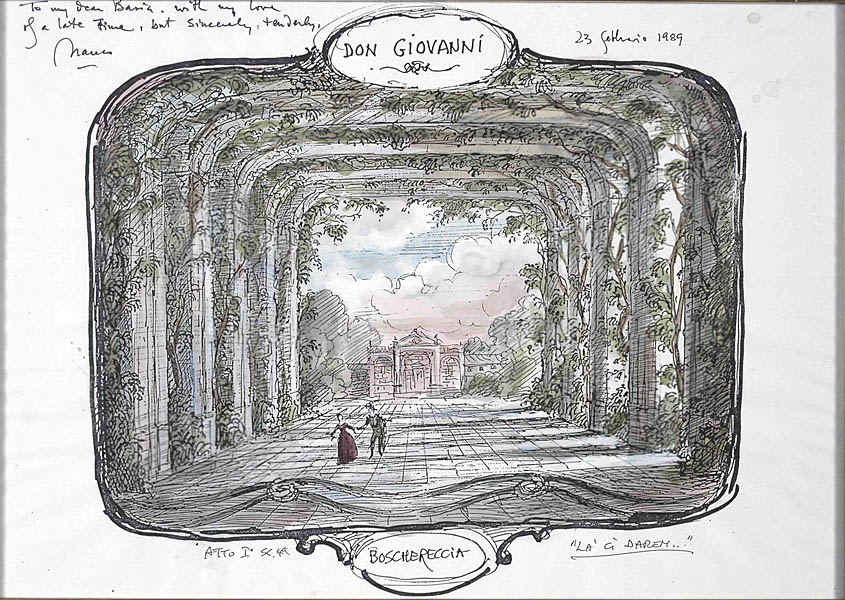 To my dear Basia. with my love
of a late time, but sincerely, tenderly,
Franco
DON GIOVANNI
23 febbraio 1989
ATTO I° SC. 4ª
BOSCHERECCIA
"LA' CI DAREM..."